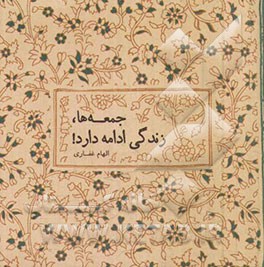 جمعه‌ها،
زندگی ادامه دارد!
الهام غفاری